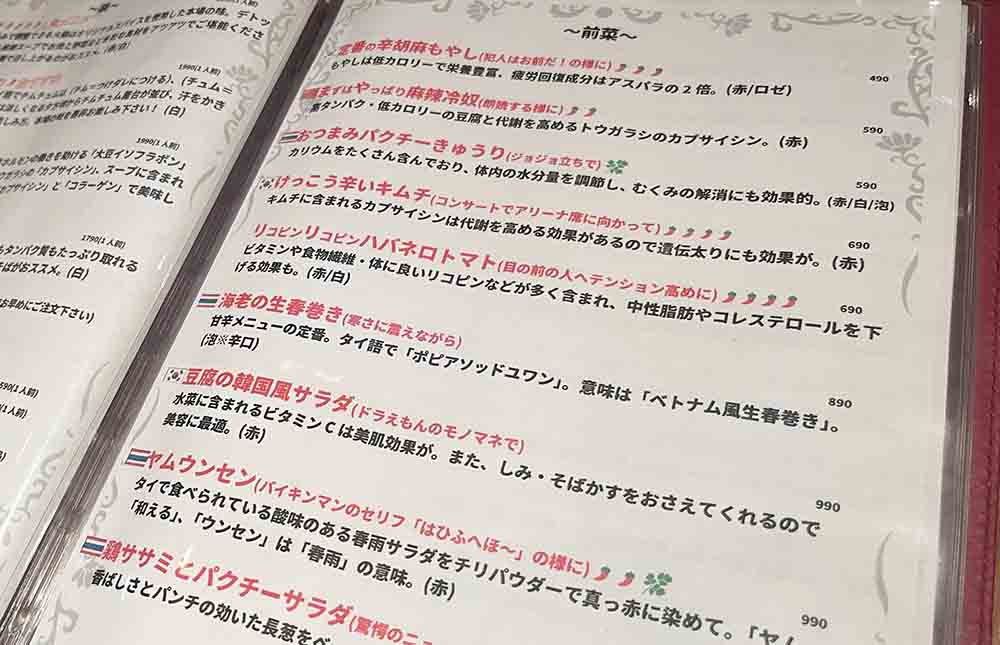 ～鍋～
本場の味。デトッ
1980(1人前)
1990(1人前)
ホルモンの働きを助ける「大豆イソフラボン」
ウガラシの「カプサイシン」、スープに含まれ
カプサイシン」と「コラーゲン」で美味し
1790(1人前)
もタンパク質もたっぷり取れる
そばがおススメ。(白)
お早めにご注文下さい)
590(1人前)
(1人前)
～前菜～
定番の辛胡麻もやし(犯人はお前だ！の様に)
490
もやしは低カロリーで栄養豊富、疲労回復成分はアスパラの2倍。(赤/ロゼ)
まずはやっぱり麻辣冷奴(朗読する様に)
590
高タンパク・低カロリーの豆腐と代謝を高めるトウガラシのカプサイシン。(赤)
おつまみパクチーきゅうり(ジョジョ立ちで)
590
カリウムをたくさん含んでおり、体内の水分量を調節し、むくみの解消にも効果的。(赤/白/泡)
けっこう辛いキムチ(コンサートでアリーナ席に向かって)
690
キムチに含まれるカプサイシンは代謝を高める効果があるので遺伝太りにも効果が。(赤)
リコピンリコピンハバネロトマト(目の前の人へテンション高めに)
690
ビタミンや食物繊維・体に良いリコピンなどが多く含まれ、中性脂肪やコレステロールを下
げる効果も。(赤/白)
海老の生春巻き(寒さに震えながら)
890
甘辛メニューの定番。タイ語で「ポピアソッドユワン」。意味は「ベトナム風生春巻き」。
(泡※辛口)
豆腐の韓国風サラダ(ドラえもんのモノマネで)
990
水菜に含まれるビタミンCは美肌効果が。また、しみ・そばかすをおさえてくれるので
美容に最適。(赤)
ヤムウンセン(バイキンマンのセリフ「はひふへほ～」の様に)
990
タイで食べられている酸味のある春雨サラダをチリパウダーで真っ赤に染めて。「ヤム
「和える」、「ウンセン」は「春雨」の意味。(赤)
鶏ササミとパクチーサラダ(驚愕のニュ
香ばしさとパンチの効いた長葱をベ